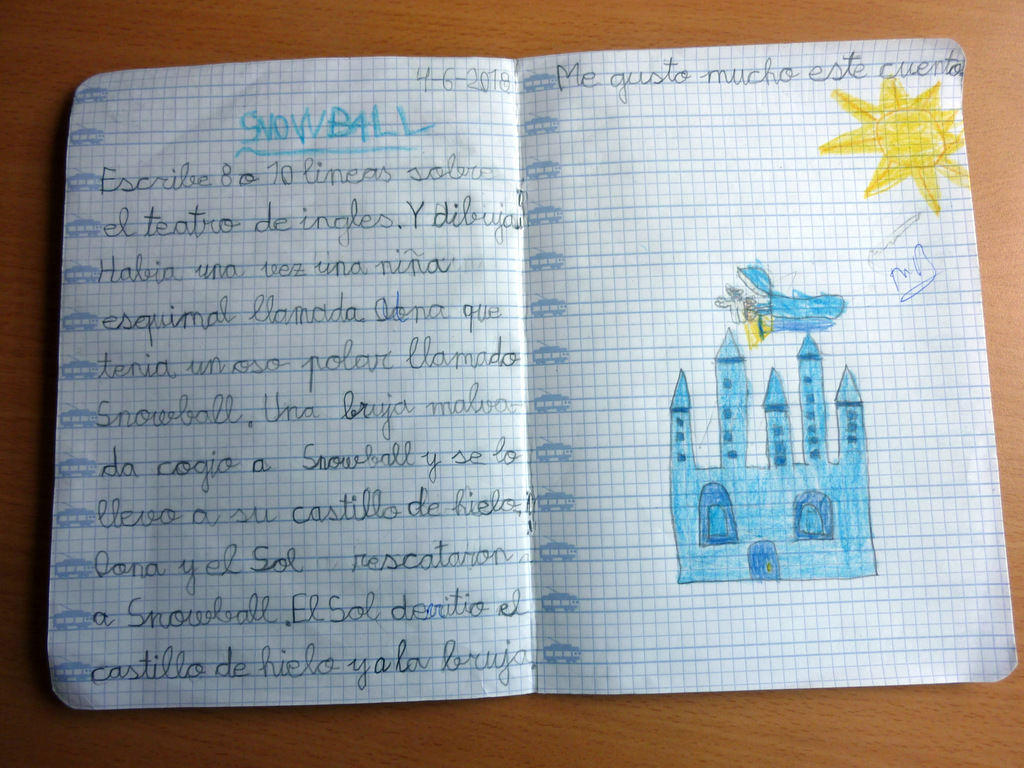 4-6-2018
SNOWBALL
Escribe 8 o 10 lineas sobre
el teatro de ingles. Y dibuja
Habia una vez una niña
esquimal llamada Oona que
tenia un oso polar llamado
Snowball. Una bruja malva-
da cogio a Snowball y se lo
llevo a su castillo de hielo.
Oona y el Sol rescataron
a Snowball. El Sol derritio el
castillo de hielo y a la bruja.
Me gusto mucho este cuento